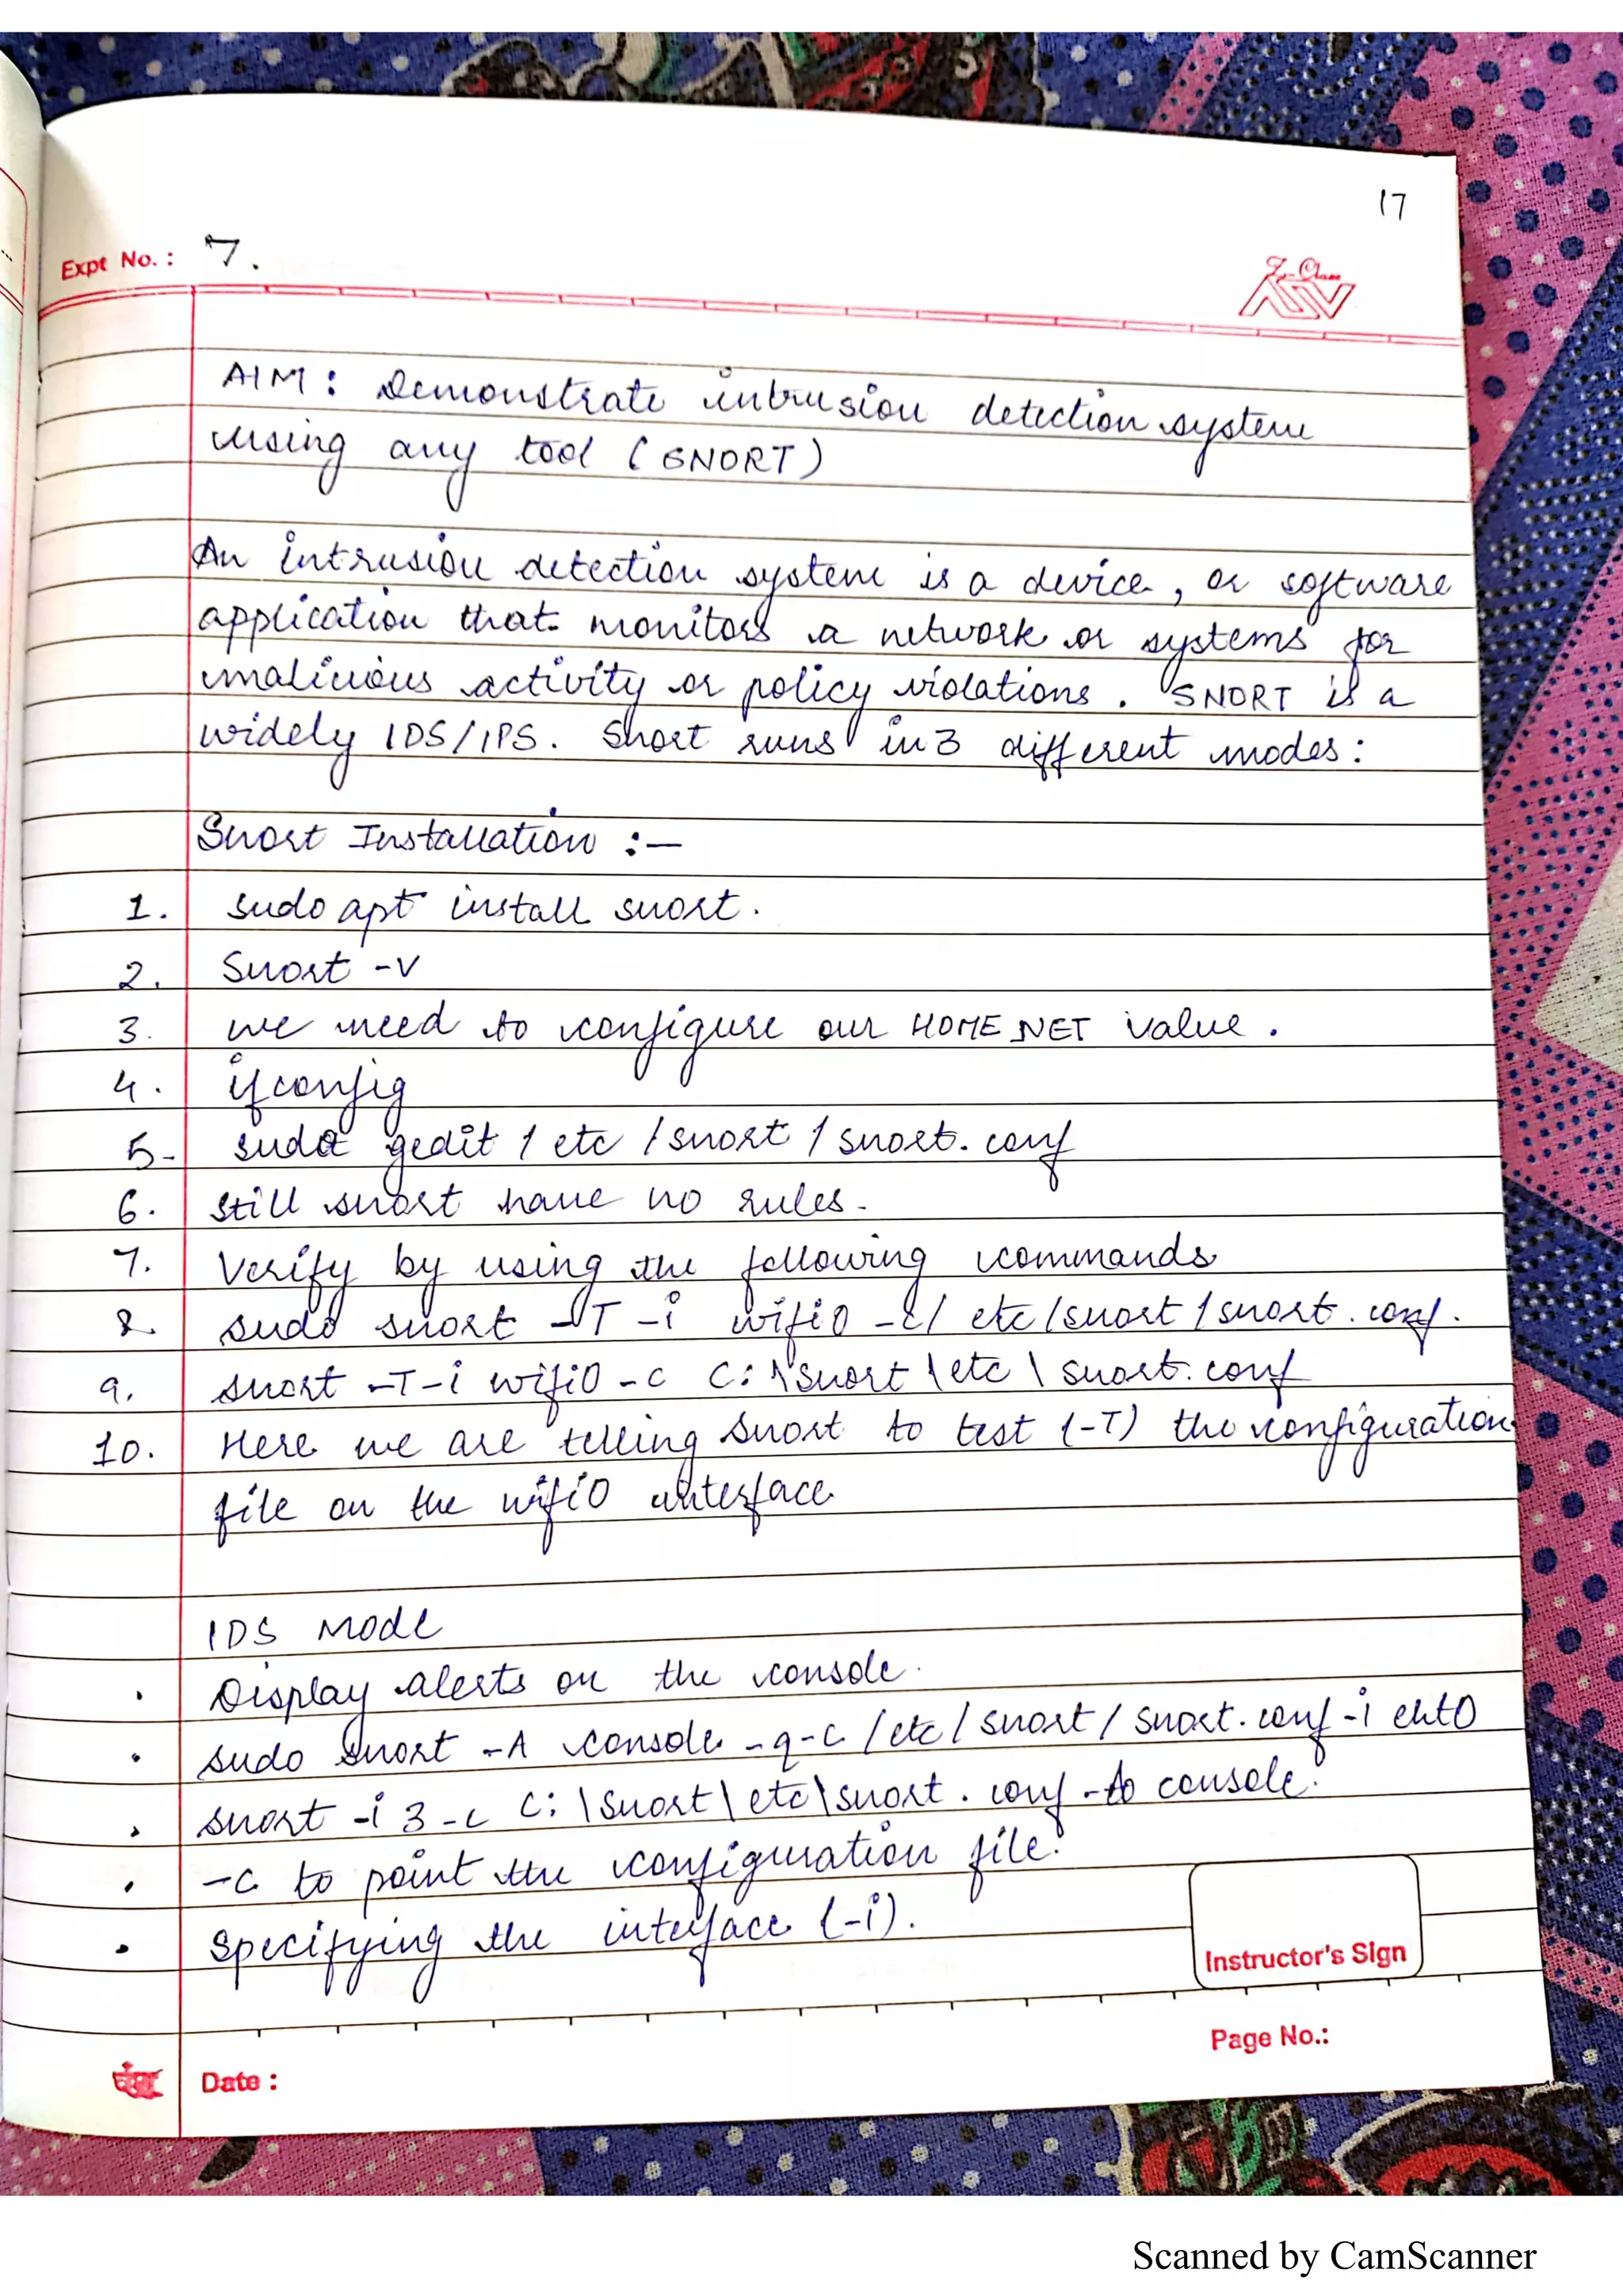 17
Expt No.: 7.
Z-Class
AIM: Demonstrate intrusion detection system
using any tool (SNORT)
An intrusion detection system is a device, or software
application that monitors a network or systems for
malicious activity or policy violations. SNORT is a
widely IDS/IPS. Snort runs in 3 different modes:
Snort Installation :-
1. sudo apt install snort.
2. Snort -V
3. we need to configure our HOME_NET value.
4. ifconfig
5- sudo gedit /etc/snort/snort.conf
6. still snort have no rules.
7. Verify by using the following commands
8. sudo snort -T -i wifi0 -c/etc/snort/snort.conf.
9. snort -T-i wifi0 -c C:\snort\etc\snort.conf
10. Here we are telling Snort to test (-T) the configuration
file on the wifi0 interface
IDS Mode
. Display alerts on the console.
. sudo snort -A console -q-c /etc/snort/snort.conf -i eht0
. snort -i 3 -c C:\snort\etc\snort.conf - console.
. -c to point the configuration file.
. Specifying the interface (-i).
Instructor's Sign
Page No.:
Date :
Scanned by CamScanner